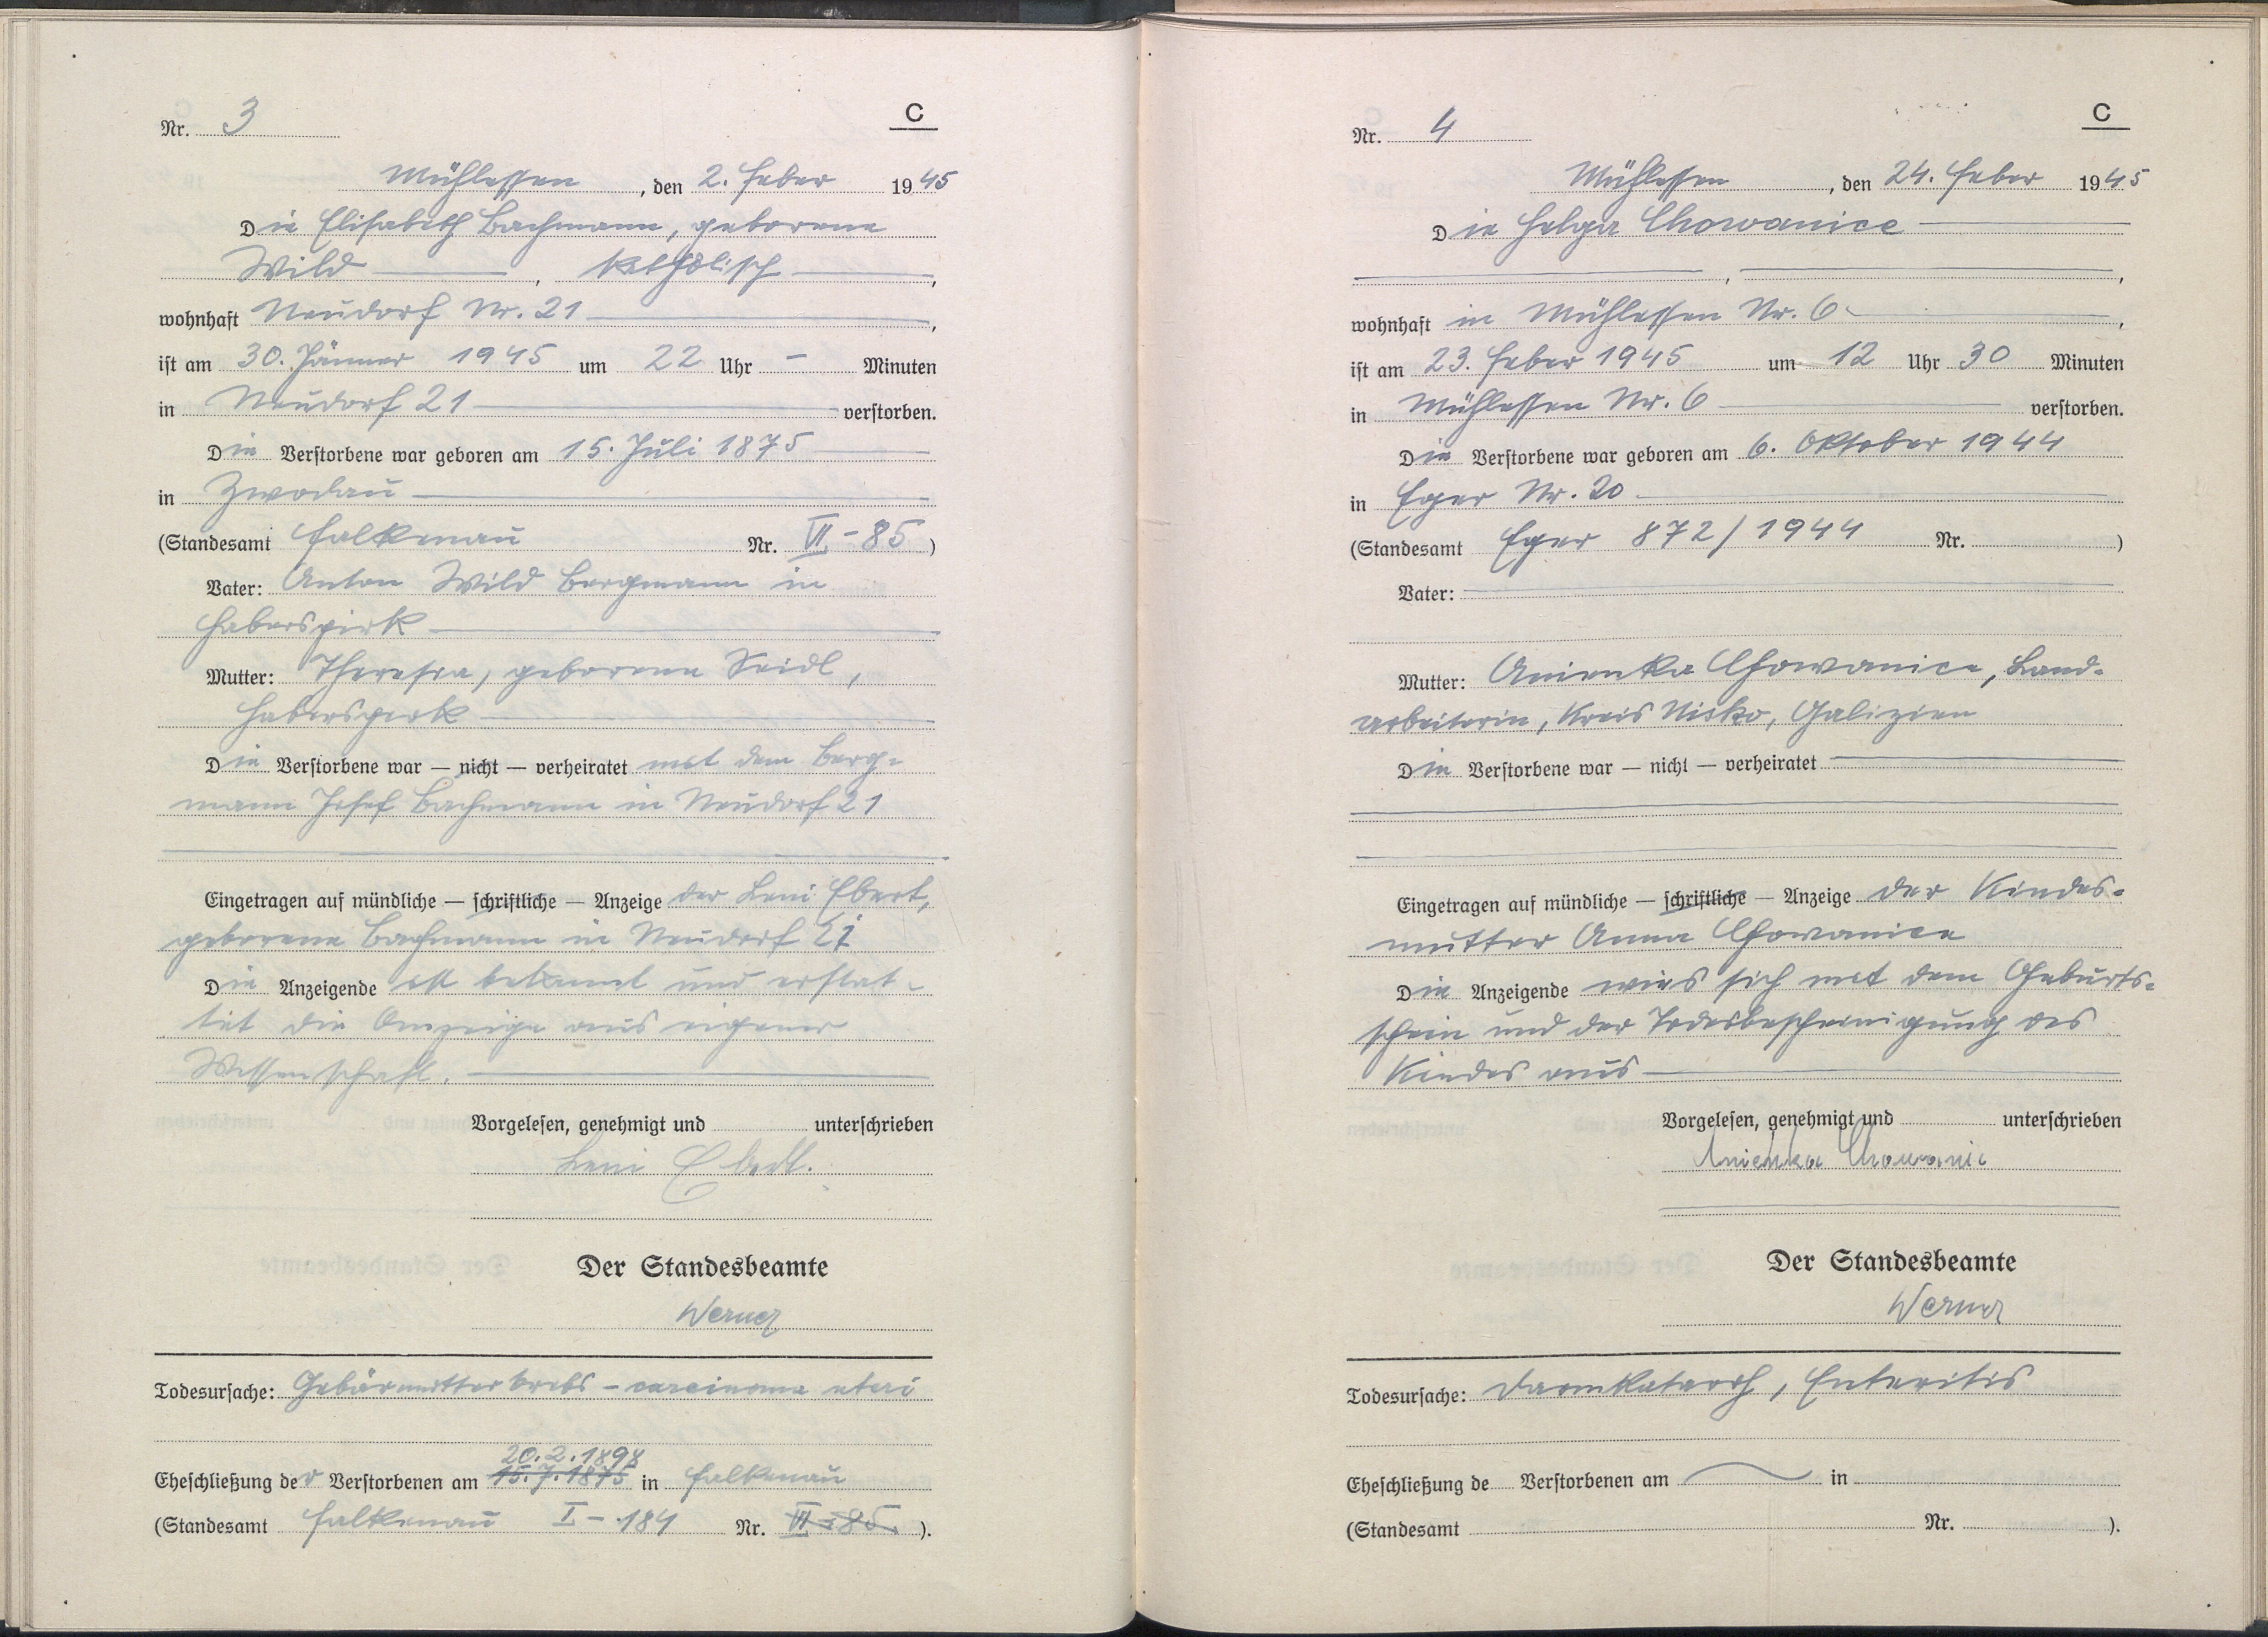 C
Nr. 3
Mühlessen, den 2. Feber 1945
Die Elisabeth Bachmann, geborene
Wild, katholisch,
wohnhaft Neudorf Nr. 21,
ist am 30. Jänner 1945 um 22 Uhr - Minuten
in Neudorf 21 verstorben.
Die Verstorbene war geboren am 15. Juli 1875
in Zwodau
(Standesamt Falkenau Nr. VII-85)
Vater: Anton Wild Bergmann in
Haberspirk
Mutter: Theresia, geborene Seidl,
Haberspirk
Die Verstorbene war — nicht — verheiratet mit dem Berg-
mann Josef Bachmann in Neudorf 21
Eingetragen auf mündliche — schriftliche — Anzeige der Leni Ebert,
geborene Bachmann in Neudorf 21
Die Anzeigende ist bekannt und erstat-
tet die Anzeige aus eigener
Wissenschaft.
Vorgelesen, genehmigt und unterschrieben
Leni
Der Standesbeamte
Werner
Todesursache: Gebärmutterkrebs - carcinoma uteri
20.2.1898
Eheschließung der Verstorbenen am 15.7.1875 in Falkenau
(Standesamt Falkenau I-184 Nr. VII-85.).
C
Nr. 4
Mühlessen, den 24. Feber 1945
Die Helga Chowanice
wohnhaft in Mühlessen Nr. 6,
ist am 23. Feber 1945 um 12 Uhr 30 Minuten
in Mühlessen Nr. 6 verstorben.
Die Verstorbene war geboren am 6. Oktober 1944
in Eger Nr. 20
(Standesamt Eger 872/1944 Nr. )
Vater:
Mutter: Anienka Chowanice, Land-
arbeiterin, Kreis Nisko, Galizien
Die Verstorbene war — nicht — verheiratet
Eingetragen auf mündliche — schriftliche — Anzeige der Kindes-
mutter Anna Chowanice
Die Anzeigende wies sich mit dem Geburts-
schein und der Todesbescheinigung des
Kindes aus
Vorgelesen, genehmigt und unterschrieben
Anienka Chowanic
Der Standesbeamte
Werner
Todesursache: Darmkatarrh, Enteritis
Eheschließung de Verstorbenen am in
(Standesamt Nr. ).